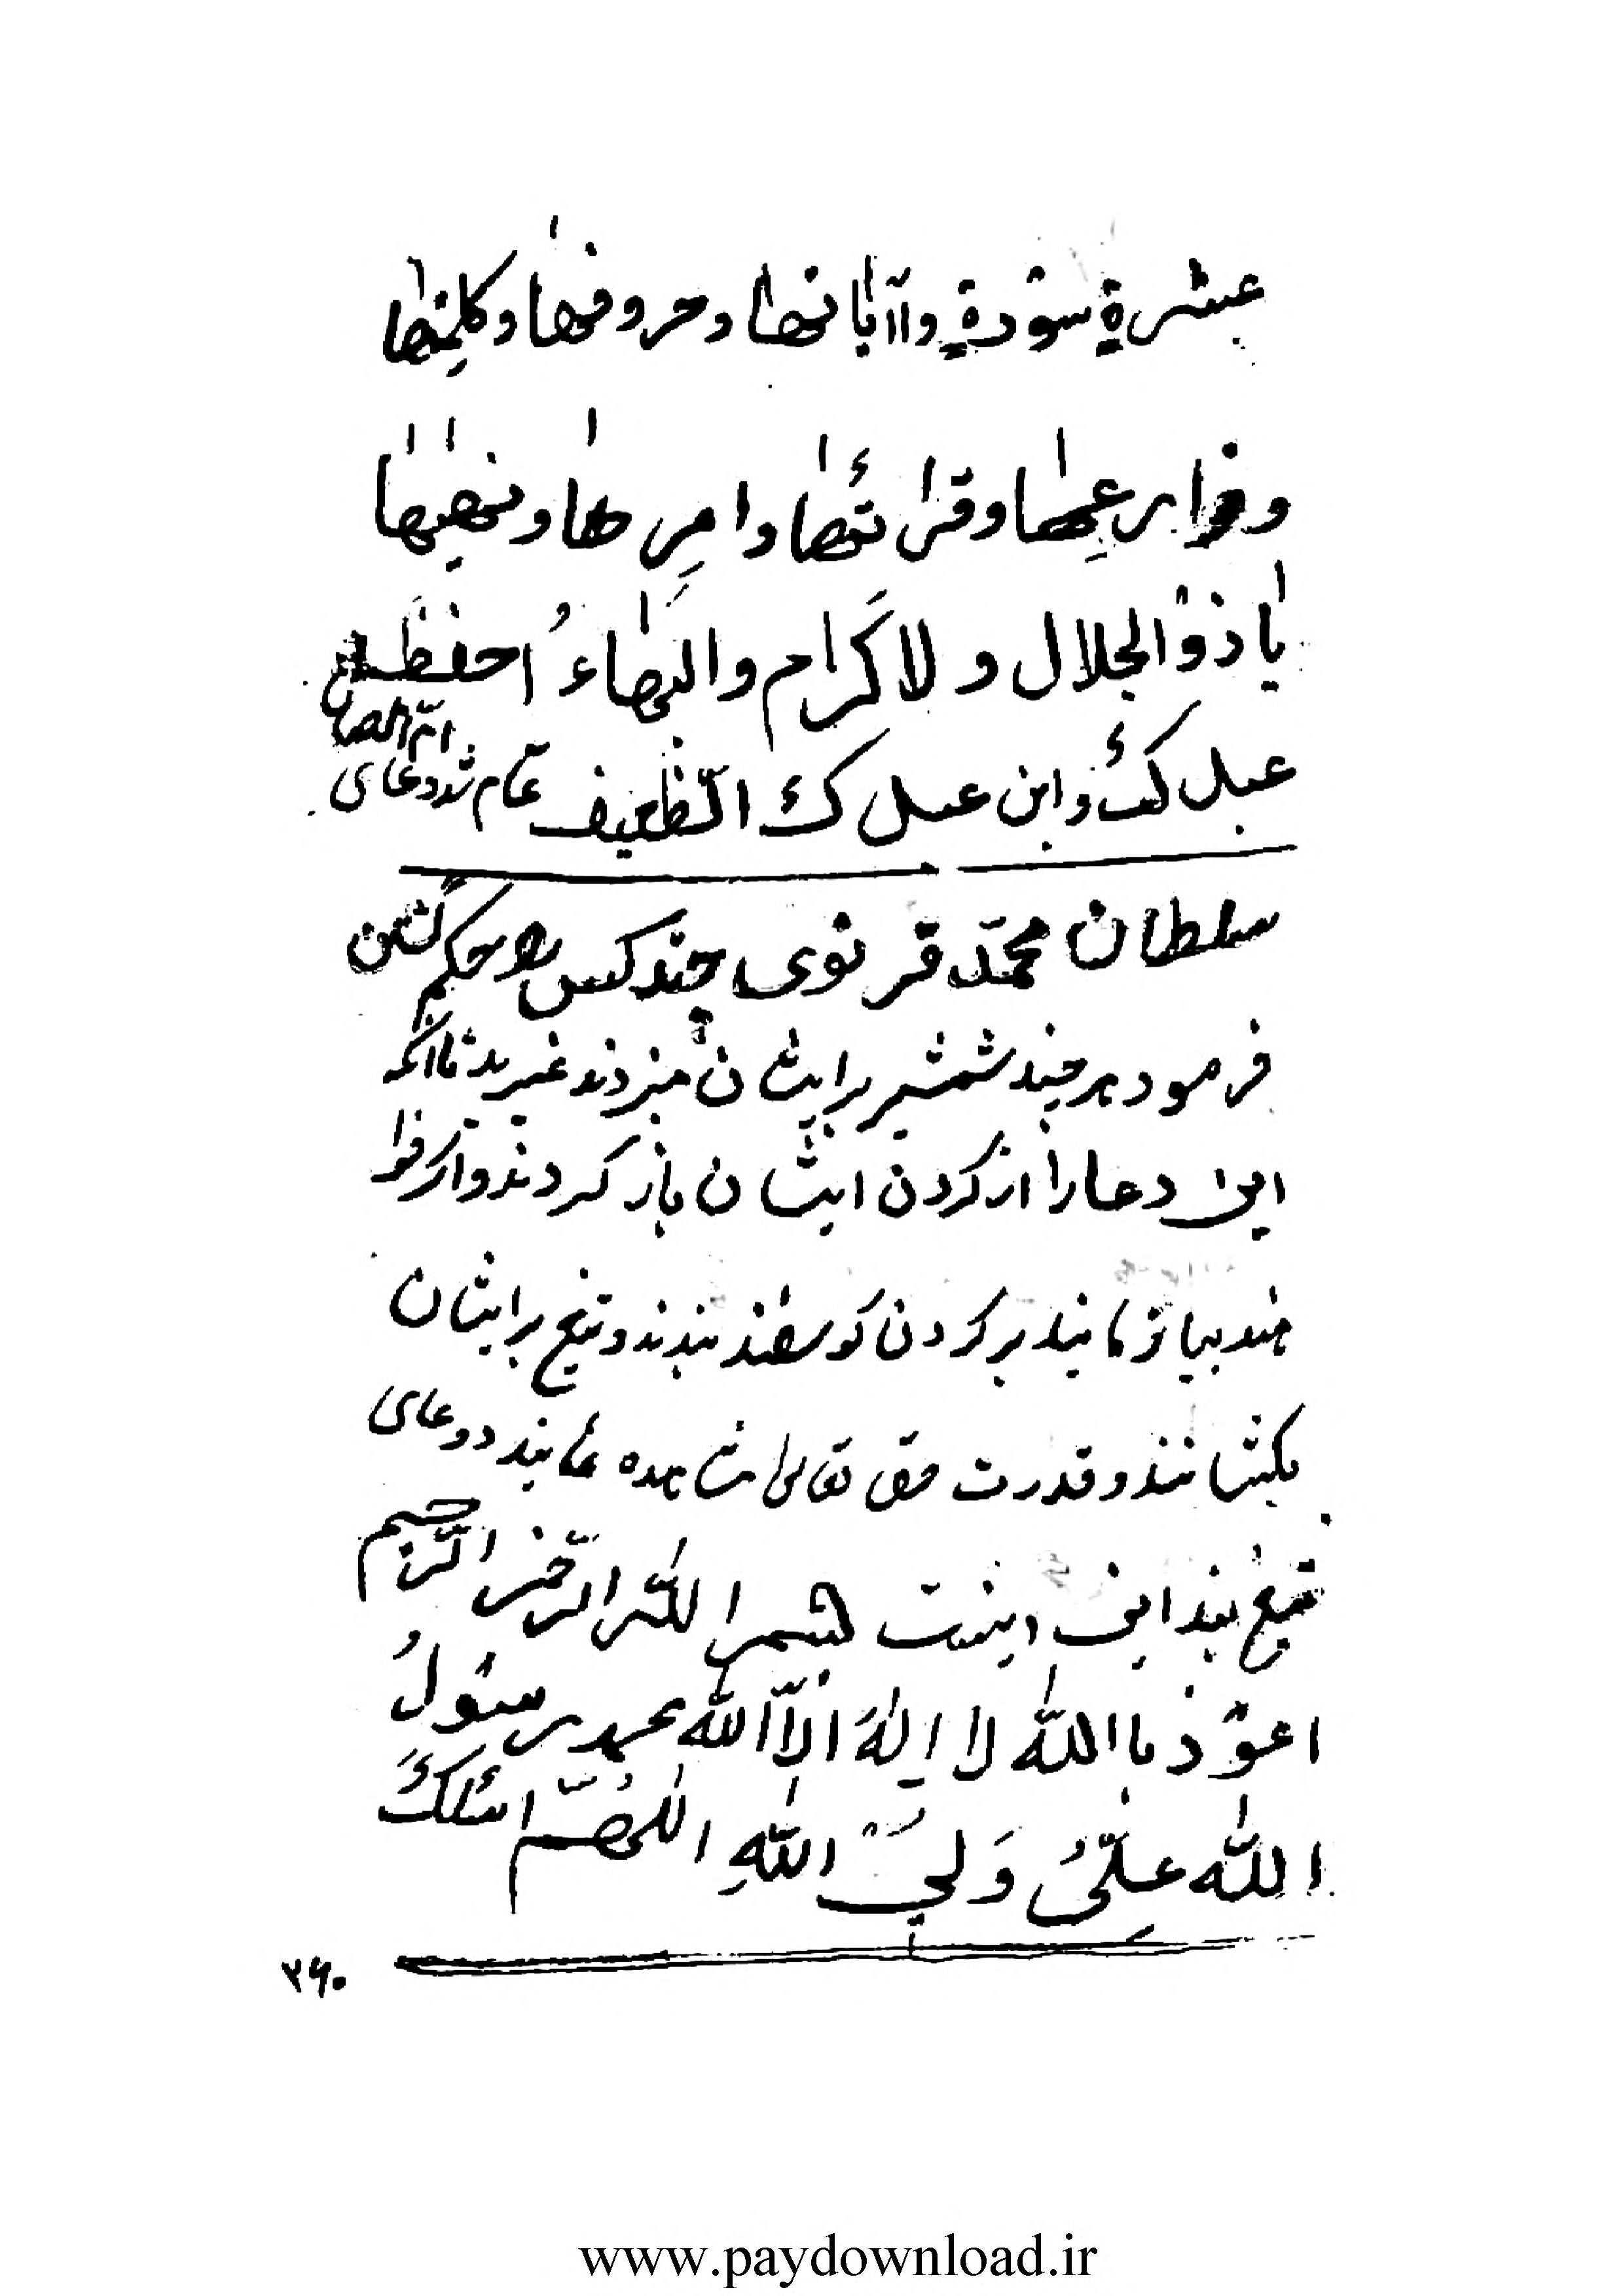 عشرة سورة وآاياتها وحروفها وكلمتها
و عها وقرائتها وامرها ونهيها
يا ذوالجلال و لاكرام والبهاء احفظ
عبدك وابن عبدك الظعيف تمام شد دعای
ام الصبیان
سلطان محمد قرنوی چند کس را حکم کشتن
فرمود هر چند شمشیر بر ایشان میزدند نمیرید تا آنکه
این دعا را از کردن ایشان باز کردند و اگر خوا
هند بیازمایند بر کردن کوسفند بندند و تیغ بر ایشان
بکشانند و قدرت حق تعالی مشاهده نمایند دعای
تیغ بند این اینست بسم الله الرحمن الرحیم
اعوذ باالله لا اله الا الله محمد رسول
الله علی ولی الله اللهم اسئلك
۲۶۰
www.paydownload.ir